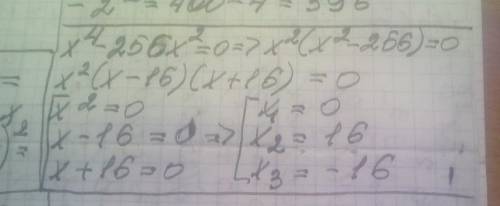 - 2 - = 400 - 4 = 396
x⁴-256x²=0=>x²(x²-256)=0
x²(x-16)(x+16) = 0
x²=0 x₁ = 0
x-16=0 => x₂ = 16
x+16=0 x₃ = -16